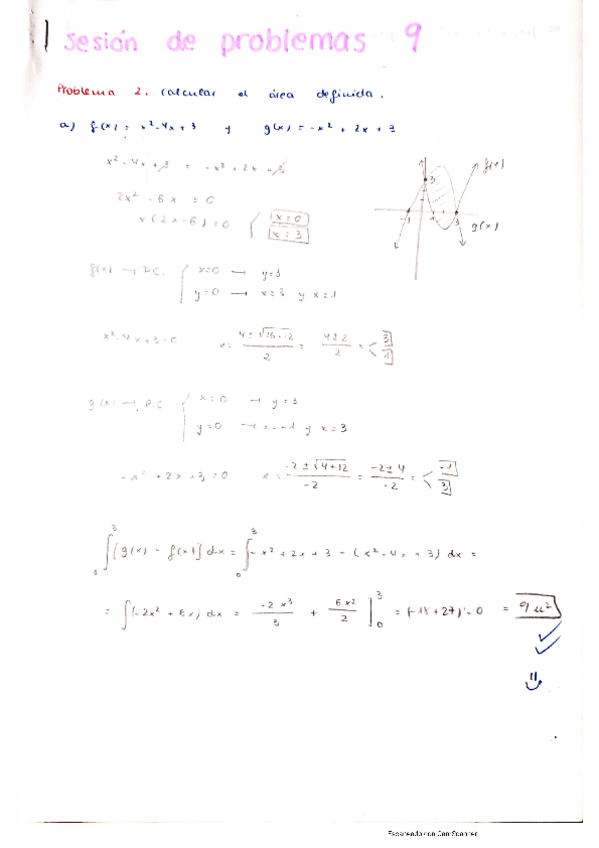 Sesión de problemas 9
Problema 2. Calcular el área definida.
a) f(x) = x²-4x+3 y g(x) = -x² + 2x + 3
x² - 4x + 3 = -x² + 2x + 3
2x² - 6x = 0
x(2x-6) = 0
x = 0
x = 3
3
f(x)
-1 1 3
g(x)
f(x) → P.C. x=0 → y=3
y=0 → x=3 y x=1
x²-4x+3=0 x= 4±√16-12 / 2 = 4±2 / 2 = 3
1
g(x) → P.C. x=0 → y=3
y=0 → x=-1 y x=3
-x² + 2x + 3 = 0 x = -2±√4+12 / -2 = -2±4 / -2 = -1
3
∫₀³ [g(x) - f(x)] dx = ∫₀³ -x² + 2x + 3 - (x² - 4x + 3) dx =
= ∫(-2x² + 6x) dx = -2x³ / 3 + 6x² / 2 |₀³ = (-18+27) - 0 = 9 u²
Escaneado con CamScanner